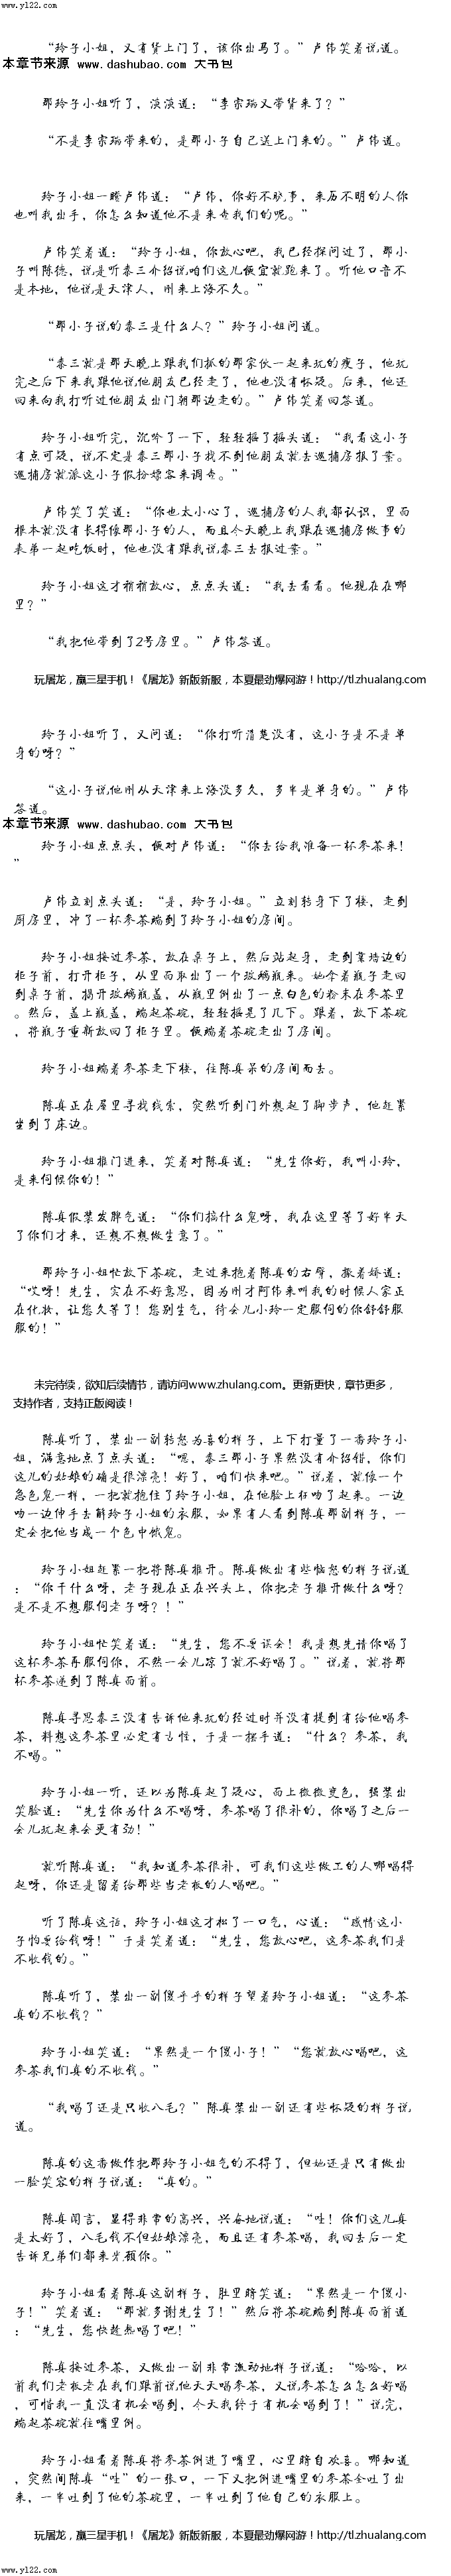 www.yl22.com
“玲子小姐，又有货上门了，该你出马了。”卢伟笑着说道。
本章节来源 www.dashubao.com 大书包
那玲子小姐听了，淡淡道：“李宗瑞又带货来了？”
“不是李宗瑞带来的，是那小子自己送上门来的。”卢伟道。
玲子小姐一瞪卢伟道：“卢伟，你好不晓事，来历不明的人你
也叫我出手，你怎么知道他不是来查我们的呢。”
卢伟笑着道：“玲子小姐，你放心吧，我已经探问过了，那小
子叫陈德，说是听秦三介绍说咱们这儿便宜就跑来了。听他口音不
是本地，他说是天津人，刚来上海不久。”
“那小子说的秦三是什么人？”玲子小姐问道。
“秦三就是那天晚上跟我们抓的那家伙一起来玩的瘦子，他玩
完之后下来我跟他说他朋友已经走了，他也没有怀疑。后来，他还
回来向我打听过他朋友出门朝那边走的。”卢伟笑着回答道。
玲子小姐听完，沉吟了一下，轻轻摇了摇头道：“我看这小子
有点可疑，说不定是秦三那小子找不到他朋友就去巡捕房报了案。
巡捕房就派这小子假扮嫖客来调查。”
卢伟笑了笑道：“你也太小心了，巡捕房的人我都认识，里面
根本就没有长得像那小子的人，而且今天晚上我跟在巡捕房做事的
表弟一起吃饭时，他也没有跟我说秦三去报过案。”
玲子小姐这才稍稍放心，点点头道：“我去看看。他现在在哪
里？”
“我把他带到了2号房里。”卢伟答道。
玩屠龙，赢三星手机！《屠龙》新版新服，本夏最劲爆网游！http://tl.zhulang.com
玲子小姐听了，又问道：“你打听清楚没有，这小子是不是单
身的呀？”
“这小子说他刚从天津来上海没多久，多半是单身的。”卢伟
答道。
本章节来源 www.dashubao.com 大书包
玲子小姐点点头，便对卢伟道：“你去给我准备一杯参茶来！
”
卢伟立刻点头道：“是，玲子小姐。”立刻转身下了楼，走到
厨房里，冲了一杯参茶端到了玲子小姐的房间。
玲子小姐接过参茶，放在桌子上，然后站起身，走到靠墙边的
柜子前，打开柜子，从里面取出了一个玻璃瓶来。她拿着瓶子走回
到桌子前，揭开玻璃瓶盖，从瓶里倒出了一点白色的粉末在参茶里
。然后，盖上瓶盖，端起茶碗，轻轻摇晃了几下。跟着，放下茶碗
，将瓶子重新放回了柜子里。便端着茶碗走出了房间。
玲子小姐端着参茶走下楼，往陈真呆的房间而去。
陈真正在屋里寻找线索，突然听到门外想起了脚步声，他赶紧
坐到了床边。
玲子小姐推门进来，笑着对陈真道：“先生你好，我叫小玲，
是来伺候你的！”
陈真假装发脾气道：“你们搞什么鬼呀，我在这里等了好半天
了你们才来，还想不想做生意了。”
那玲子小姐忙放下茶碗，走过来抱着陈真的右臂，撒着娇道：
“哎呀！先生，实在不好意思，因为刚才阿伟来叫我的时候人家正
在化妆，让您久等了！您别生气，待会儿小玲一定服伺的你舒舒服
服的！”
未完待续，欲知后续情节，请访问www.zhulang.com。更新更快，章节更多，
支持作者，支持正版阅读！
陈真听了，装出一副转怒为喜的样子，上下打量了一番玲子小
姐，满意地点了点头道：“嗯，秦三那小子果然没有介绍错，你们
这儿的姑娘的确是很漂亮！好了，咱们快来吧。”说着，就像一个
急色鬼一样，一把就抱住了玲子小姐，在他脸上狂吻了起来。一边
吻一边伸手去解玲子小姐的衣服，如果有人看到陈真那副样子，一
定会把他当成一个色中饿鬼。
玲子小姐赶紧一把将陈真推开。陈真做出有些恼怒的样子说道
：“你干什么呀，老子现在正在兴头上，你把老子推开做什么呀？
是不是不想服伺老子呀？！”
玲子小姐忙笑着道：“先生，您不要误会！我是想先请你喝了
这杯参茶再服伺你，不然一会儿凉了就不好喝了。”说着，就将那
杯参茶递到了陈真面前。
陈真寻思秦三没有告诉他来玩的经过时并没有提到有给他喝参
茶，料想这参茶里必定有古怪，于是一摆手道：“什么？参茶，我
不喝。”
玲子小姐一听，还以为陈真起了疑心，面上微微变色，强装出
笑脸道：“先生你为什么不喝呀，参茶喝了很补的，你喝了之后一
会儿玩起来会更有劲！”
就听陈真道：“我知道参茶很补，可我们这些做工的人哪喝得
起呀，你还是留着给那些当老板的人喝吧。”
听了陈真这话，玲子小姐这才松了一口气，心道：“感情这小
子怕要给钱呀！”于是笑着道：“先生，您放心吧，这参茶我们是
不收钱的。”
陈真听了，装出一副傻乎乎的样子望着玲子小姐道：“这参茶
真的不收钱？”
玲子小姐笑道：“果然是一个傻小子！”“您就放心喝吧，这
参茶我们真的不收钱。”
“我喝了还是只收八毛？”陈真装出一副还有些怀疑的样子说
道。
陈真的这番做作把那玲子小姐气的不得了，但她还是只有做出
一脸笑容的样子说道：“真的。”
陈真闻言，显得非常的高兴，兴奋地说道：“哇！你们这儿真
是太好了，八毛钱不但姑娘漂亮，而且还有参茶喝，我回去后一定
告诉兄弟们都来光顾你。”
玲子小姐看着陈真这副样子，肚里暗笑道：“果然是一个傻小
子！”笑着道：“那就多谢先生了！”然后将茶碗端到陈真面前道
：“先生，您快趁热喝了吧！”
陈真接过参茶，又做出一副非常激动地样子说道：“哈哈，以
前我们老板老在我们跟前说他天天喝参茶，又说参茶怎么怎么好喝
，可惜我一直没有机会喝到，今天我终于有机会喝到了！”说完，
端起茶碗就往嘴里倒。
玲子小姐看着陈真将参茶倒进了嘴里，心里暗自欢喜。哪知道
，突然间陈真“哇”的一张口，一下又把倒进嘴里的参茶全吐了出
来，一半吐到了他的茶碗里，一半吐到了他自己的衣服上。
玩屠龙，赢三星手机！《屠龙》新版新服，本夏最劲爆网游！http://tl.zhulang.com
www.yl22.com